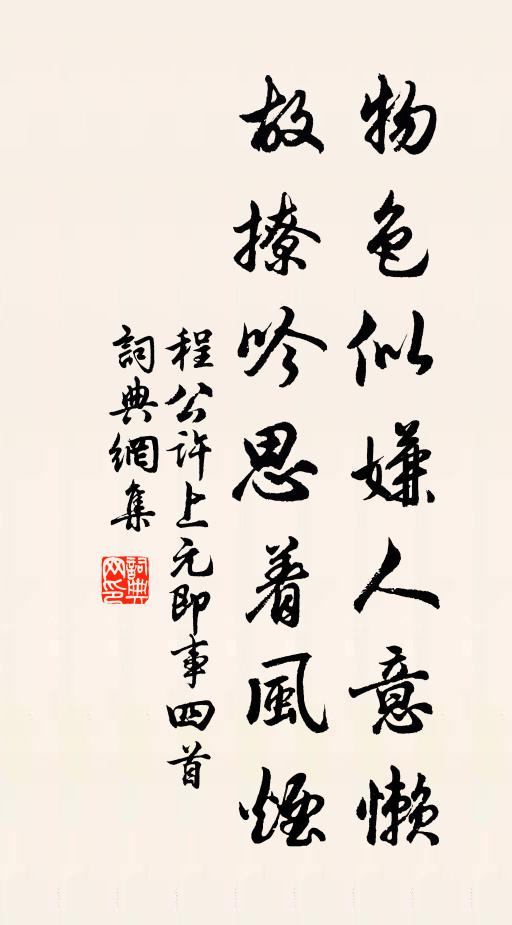 物色似嫌人意懶
故撩吟思着風煙
程公許上元即事四首
詞典網集
詞典网印